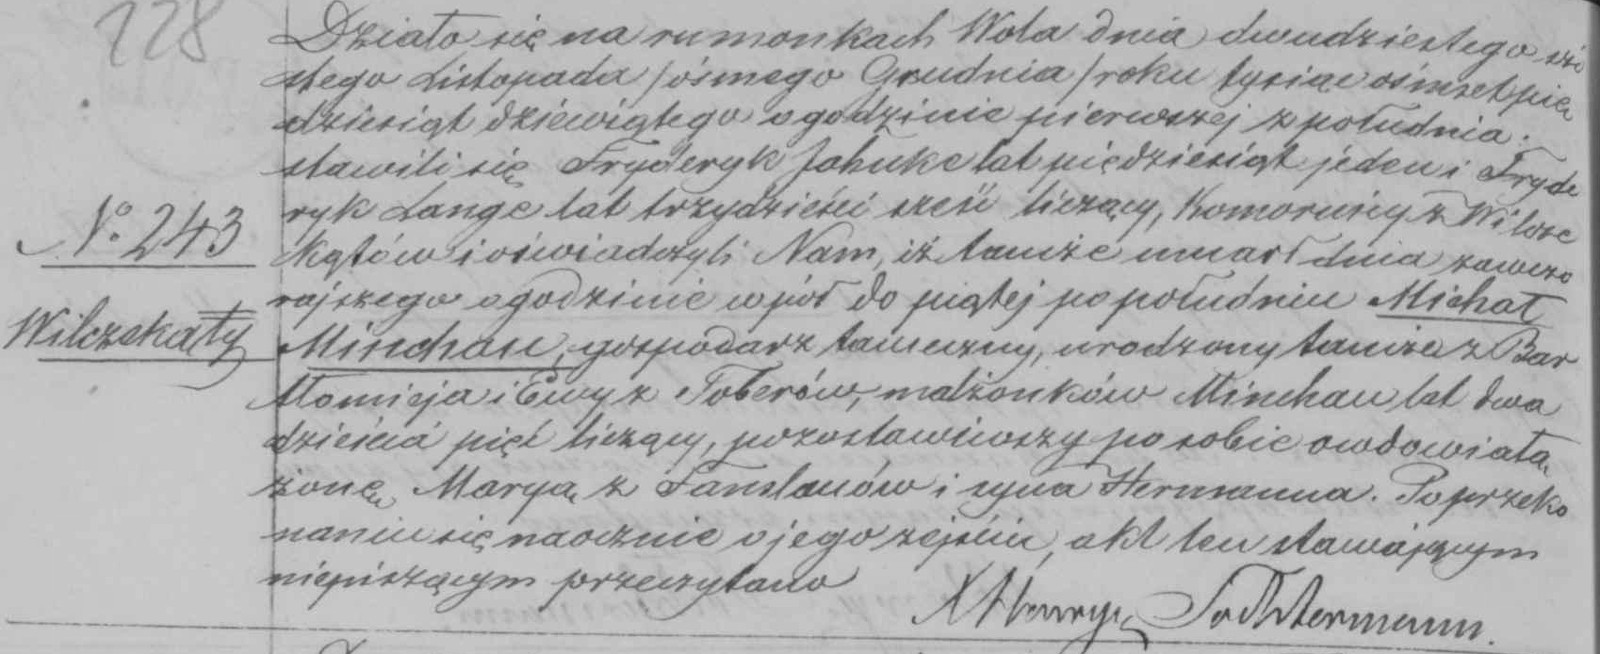 228
Działo się na rumonkach Wola dnia dwudziestego szó
stego Listopada /ósmego Grudnia/ roku tysiąc ośmset pięć
dziesiąt dziewiątego o godzinie pierwszej z południa.
stawili się Fryderyk Jahnke lat pięćdziesiąt jeden i Fryde
ryk Lange lat trzydzieści sześć liczący, Komornicy z Wilcze
Nº 243
Kątów i oświadczyli Nam, iż tamże umarł dnia zawczo
rajszego o godzinie wpół do piątej po południu Michał
Wilczekąty
Minchau, gospodarz tameczny, urodzony tamże z Bar
tłomieja i Ewy z Toberów, małżonków Minchau lat dwa
dzieścia pięć liczący, pozostawiwszy po sobie owdowiałą
żonę Maryą z Fanslauów i syna Hermanna. Po przeko
naniu się naocznie o jego zejściu, akt ten stawającym
niepiszącym przeczytano
X Henryk